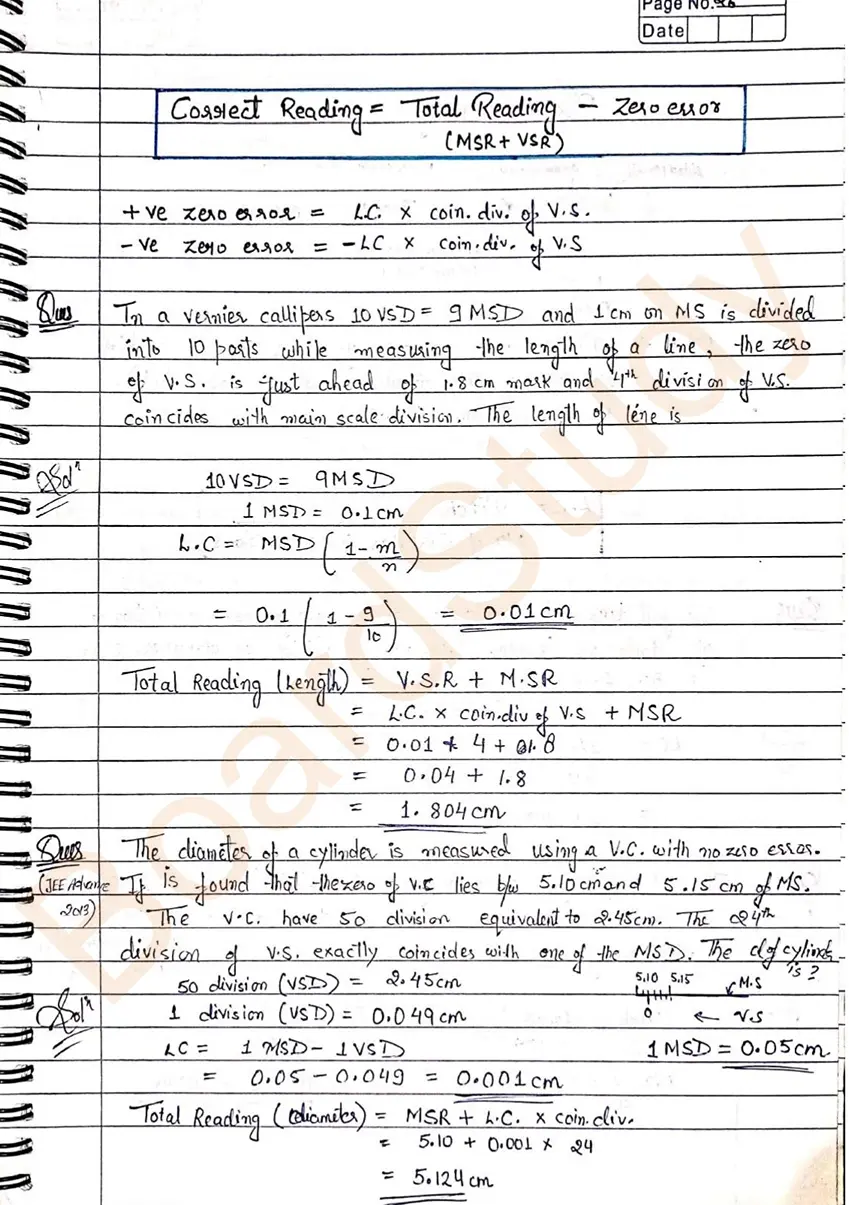 Page No.
Date
Correct Reading = Total Reading - Zero error
(MSR + VSR)
+ve zero error = L.C. × coin. div. of V.S.
-ve zero error = -LC × coin. div. of V.S
Ques In a vernier callipers 10 VSD = 9 MSD and 1 cm on MS is divided
into 10 parts while measuring the length of a line, the zero
of V.S. is just ahead of 1.8 cm mark and 4th division of V.S.
coincides with main scale division. The length of line is
Solⁿ 10 VSD = 9 MSD
1 MSD = 0.1 cm
L.C = MSD (1 - m/n)
= 0.1 (1 - 9/10) = 0.01 cm
Total Reading (Length) = V.S.R + M.SR
= L.C. × coin.div of V.S + MSR
= 0.01 * 4 + 1.8
= 0.04 + 1.8
= 1.804 cm
Ques The diameter of a cylinder is measured using a V.C. with no zero error.
(JEE Advance It is found that the zero of V.C lies b/w 5.10 cm and 5.15 cm of MS.
2013) The V.C. have 50 division equivalent to 2.45cm. The 24th
division of V.S. exactly coincides with one of the MSD. The d of cylinder
is?
50 division (VSD) = 2.45cm
5.10 5.15 M.S
Solⁿ 1 division (VSD) = 0.049 cm
0 ← V.S
LC = 1 MSD - 1 VSD 1 MSD = 0.05cm
= 0.05 - 0.049 = 0.001 cm
Total Reading (diameter) = MSR + L.C. × coin.div.
= 5.10 + 0.001 × 24
= 5.124 cm
BoardStudy